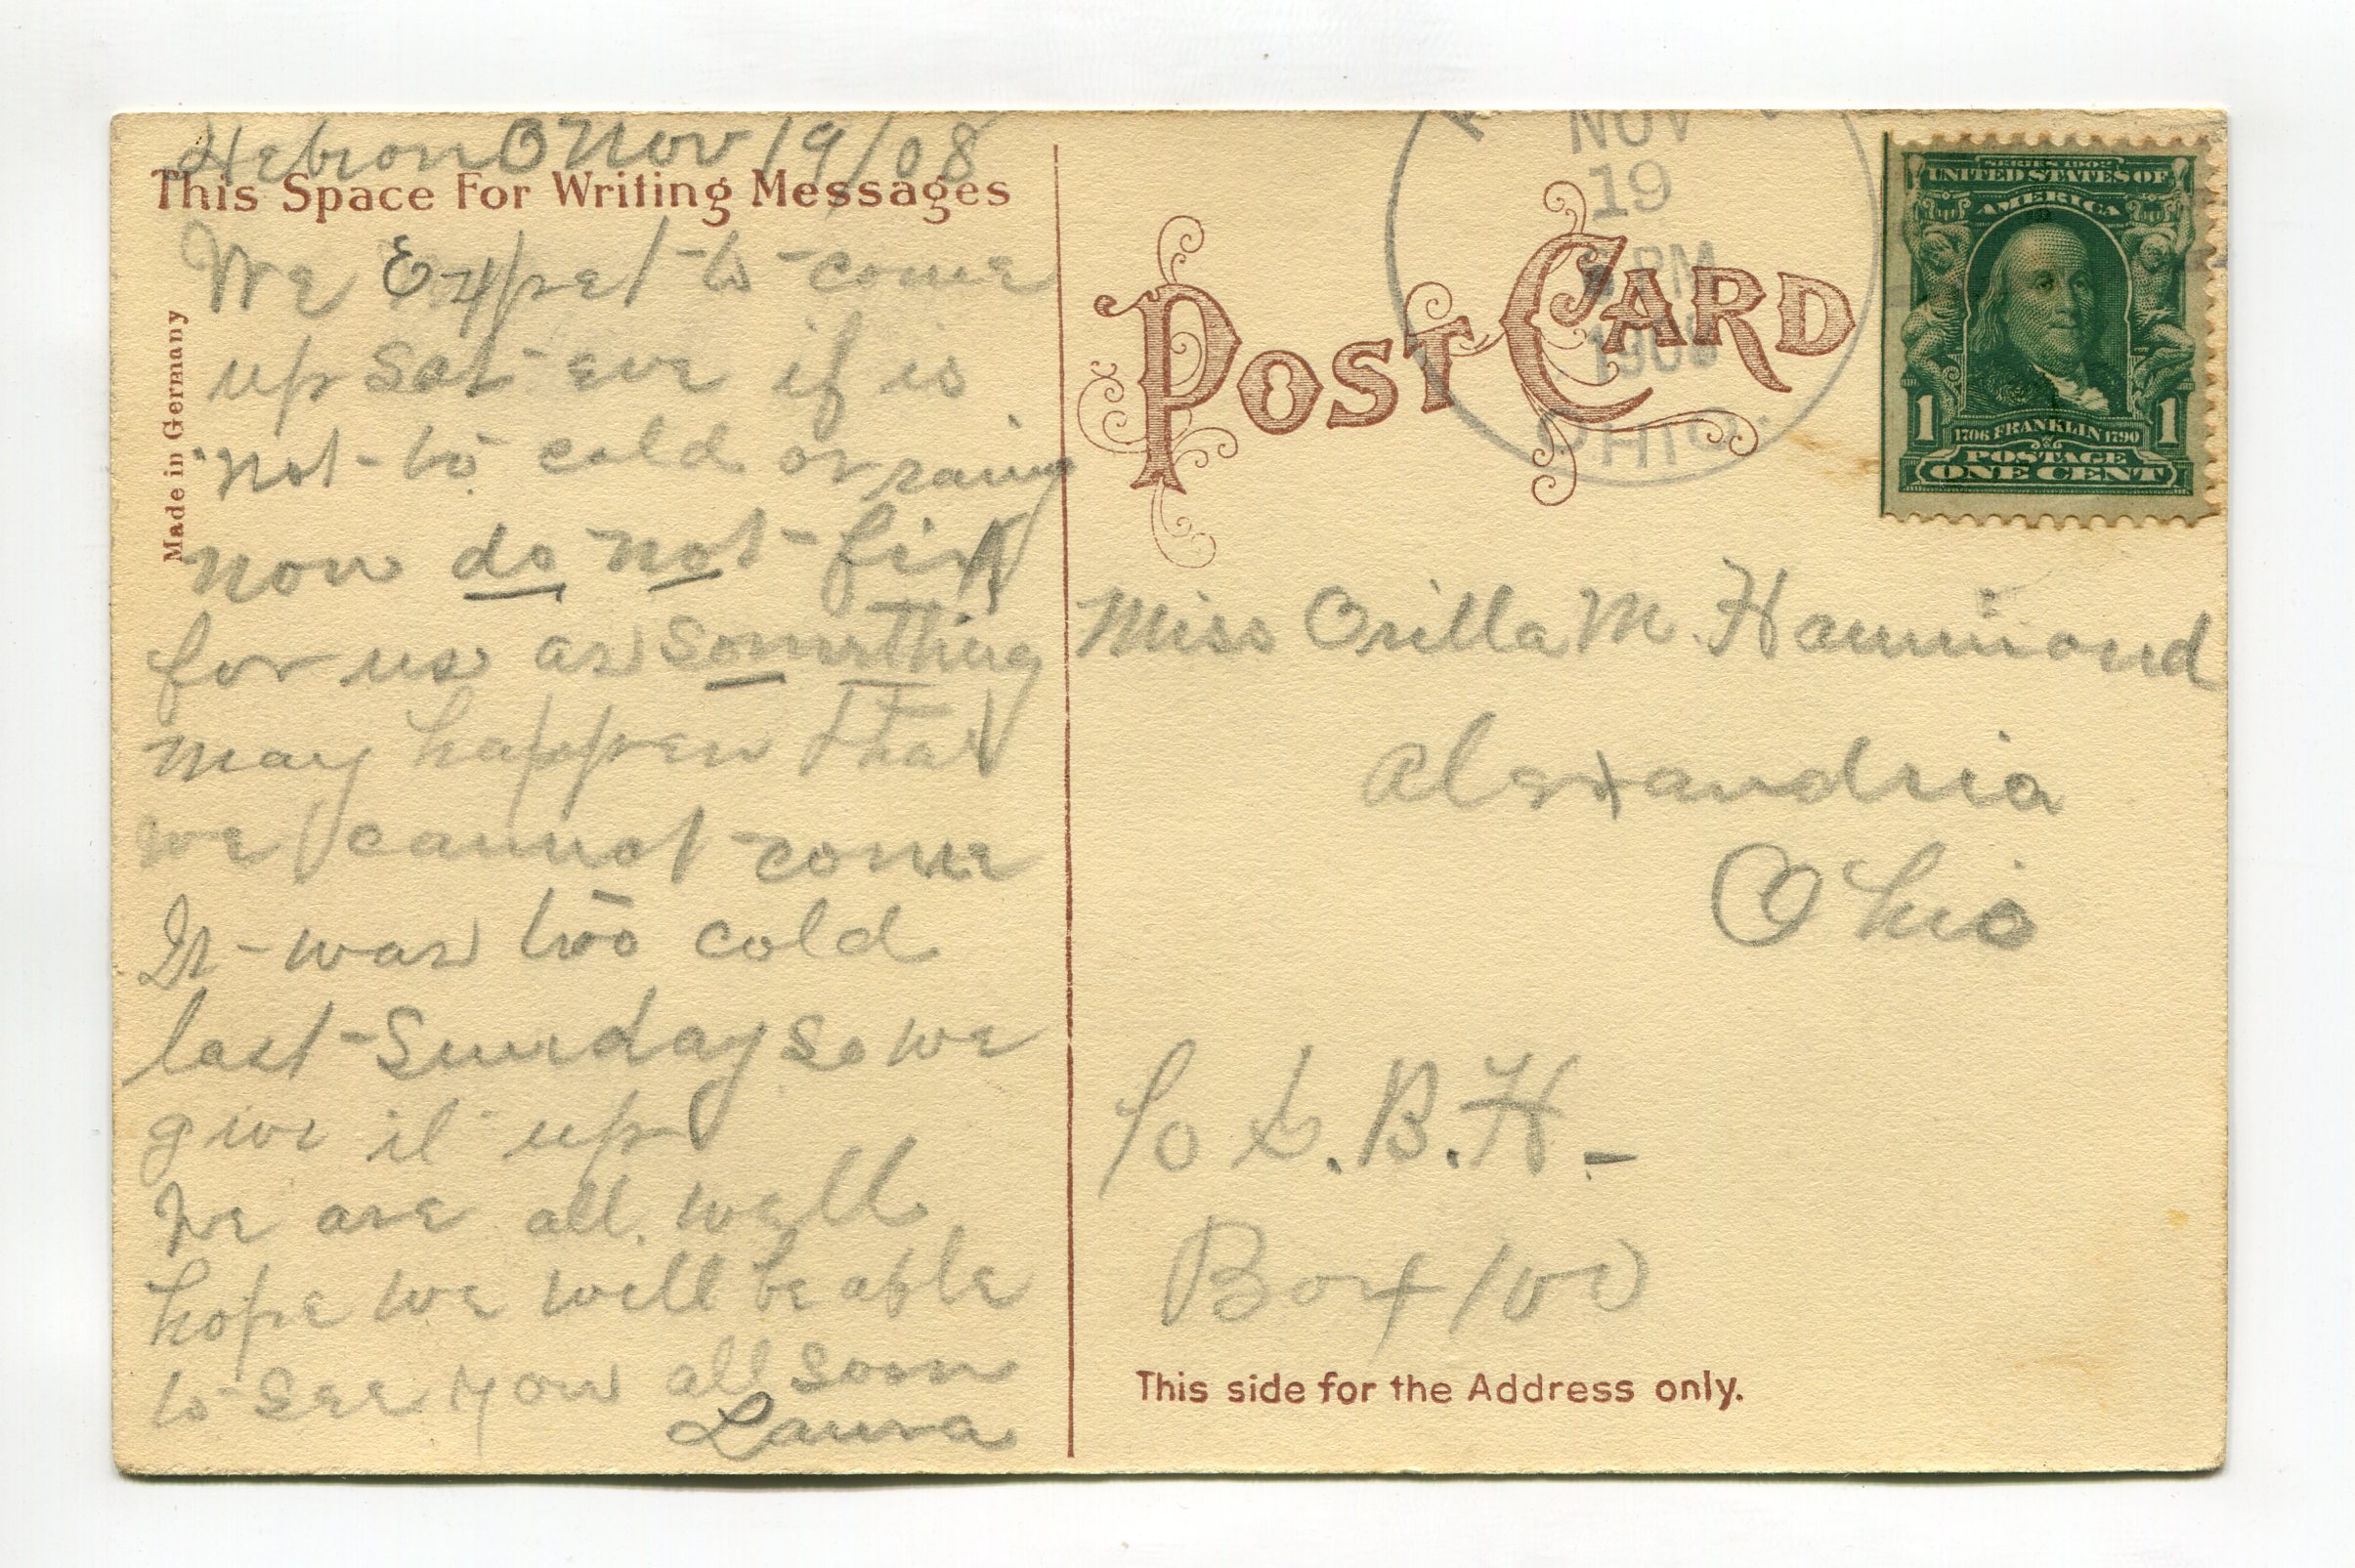 Hebron O Nov 19/08
This Space For Writing Messages
We Expect to come
up Sat eve if is
not to cold or rainy
now do not fix
for us as something
may happen that
we cannot come
It was too cold
last Sunday so we
give it up
We are all well
hope we will be able
to see you all soon
Laura
Made in Germany
POST CARD
NOV
19
PM
1908
OHIO.
SERIES 1902
UNITED STATES OF
AMERICA
1 1
1706 FRANKLIN 1790
POSTAGE
ONE CENT
Miss Orilla M. Hammond
Alexandria
Ohio
c/o L. B. H.
Box 100
This side for the Address only.